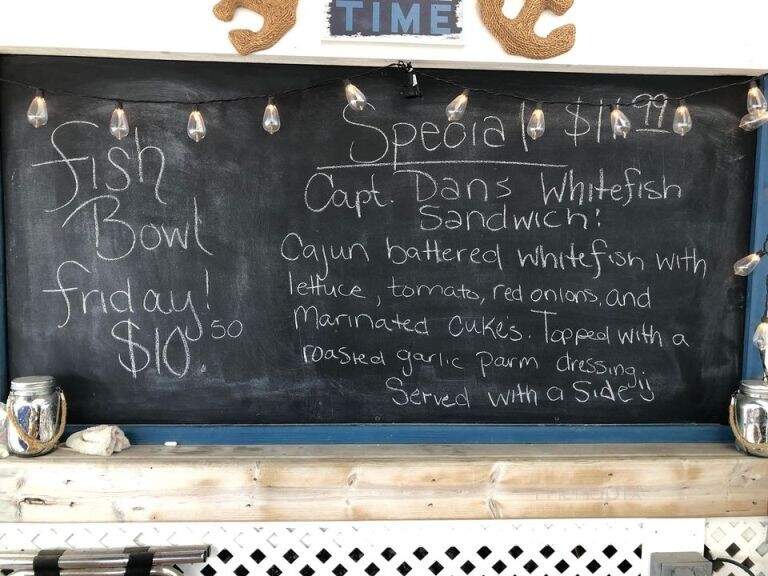 TIME
fish
Bowl
friday!
$10.50
Special $11.99
Capt. Dans Whitefish
Sandwich!
Cajun battered whitefish with
lettuce, tomato, red onions, and
Marinated cukes. Topped with a
roasted garlic parm dressing.
Served with a Side